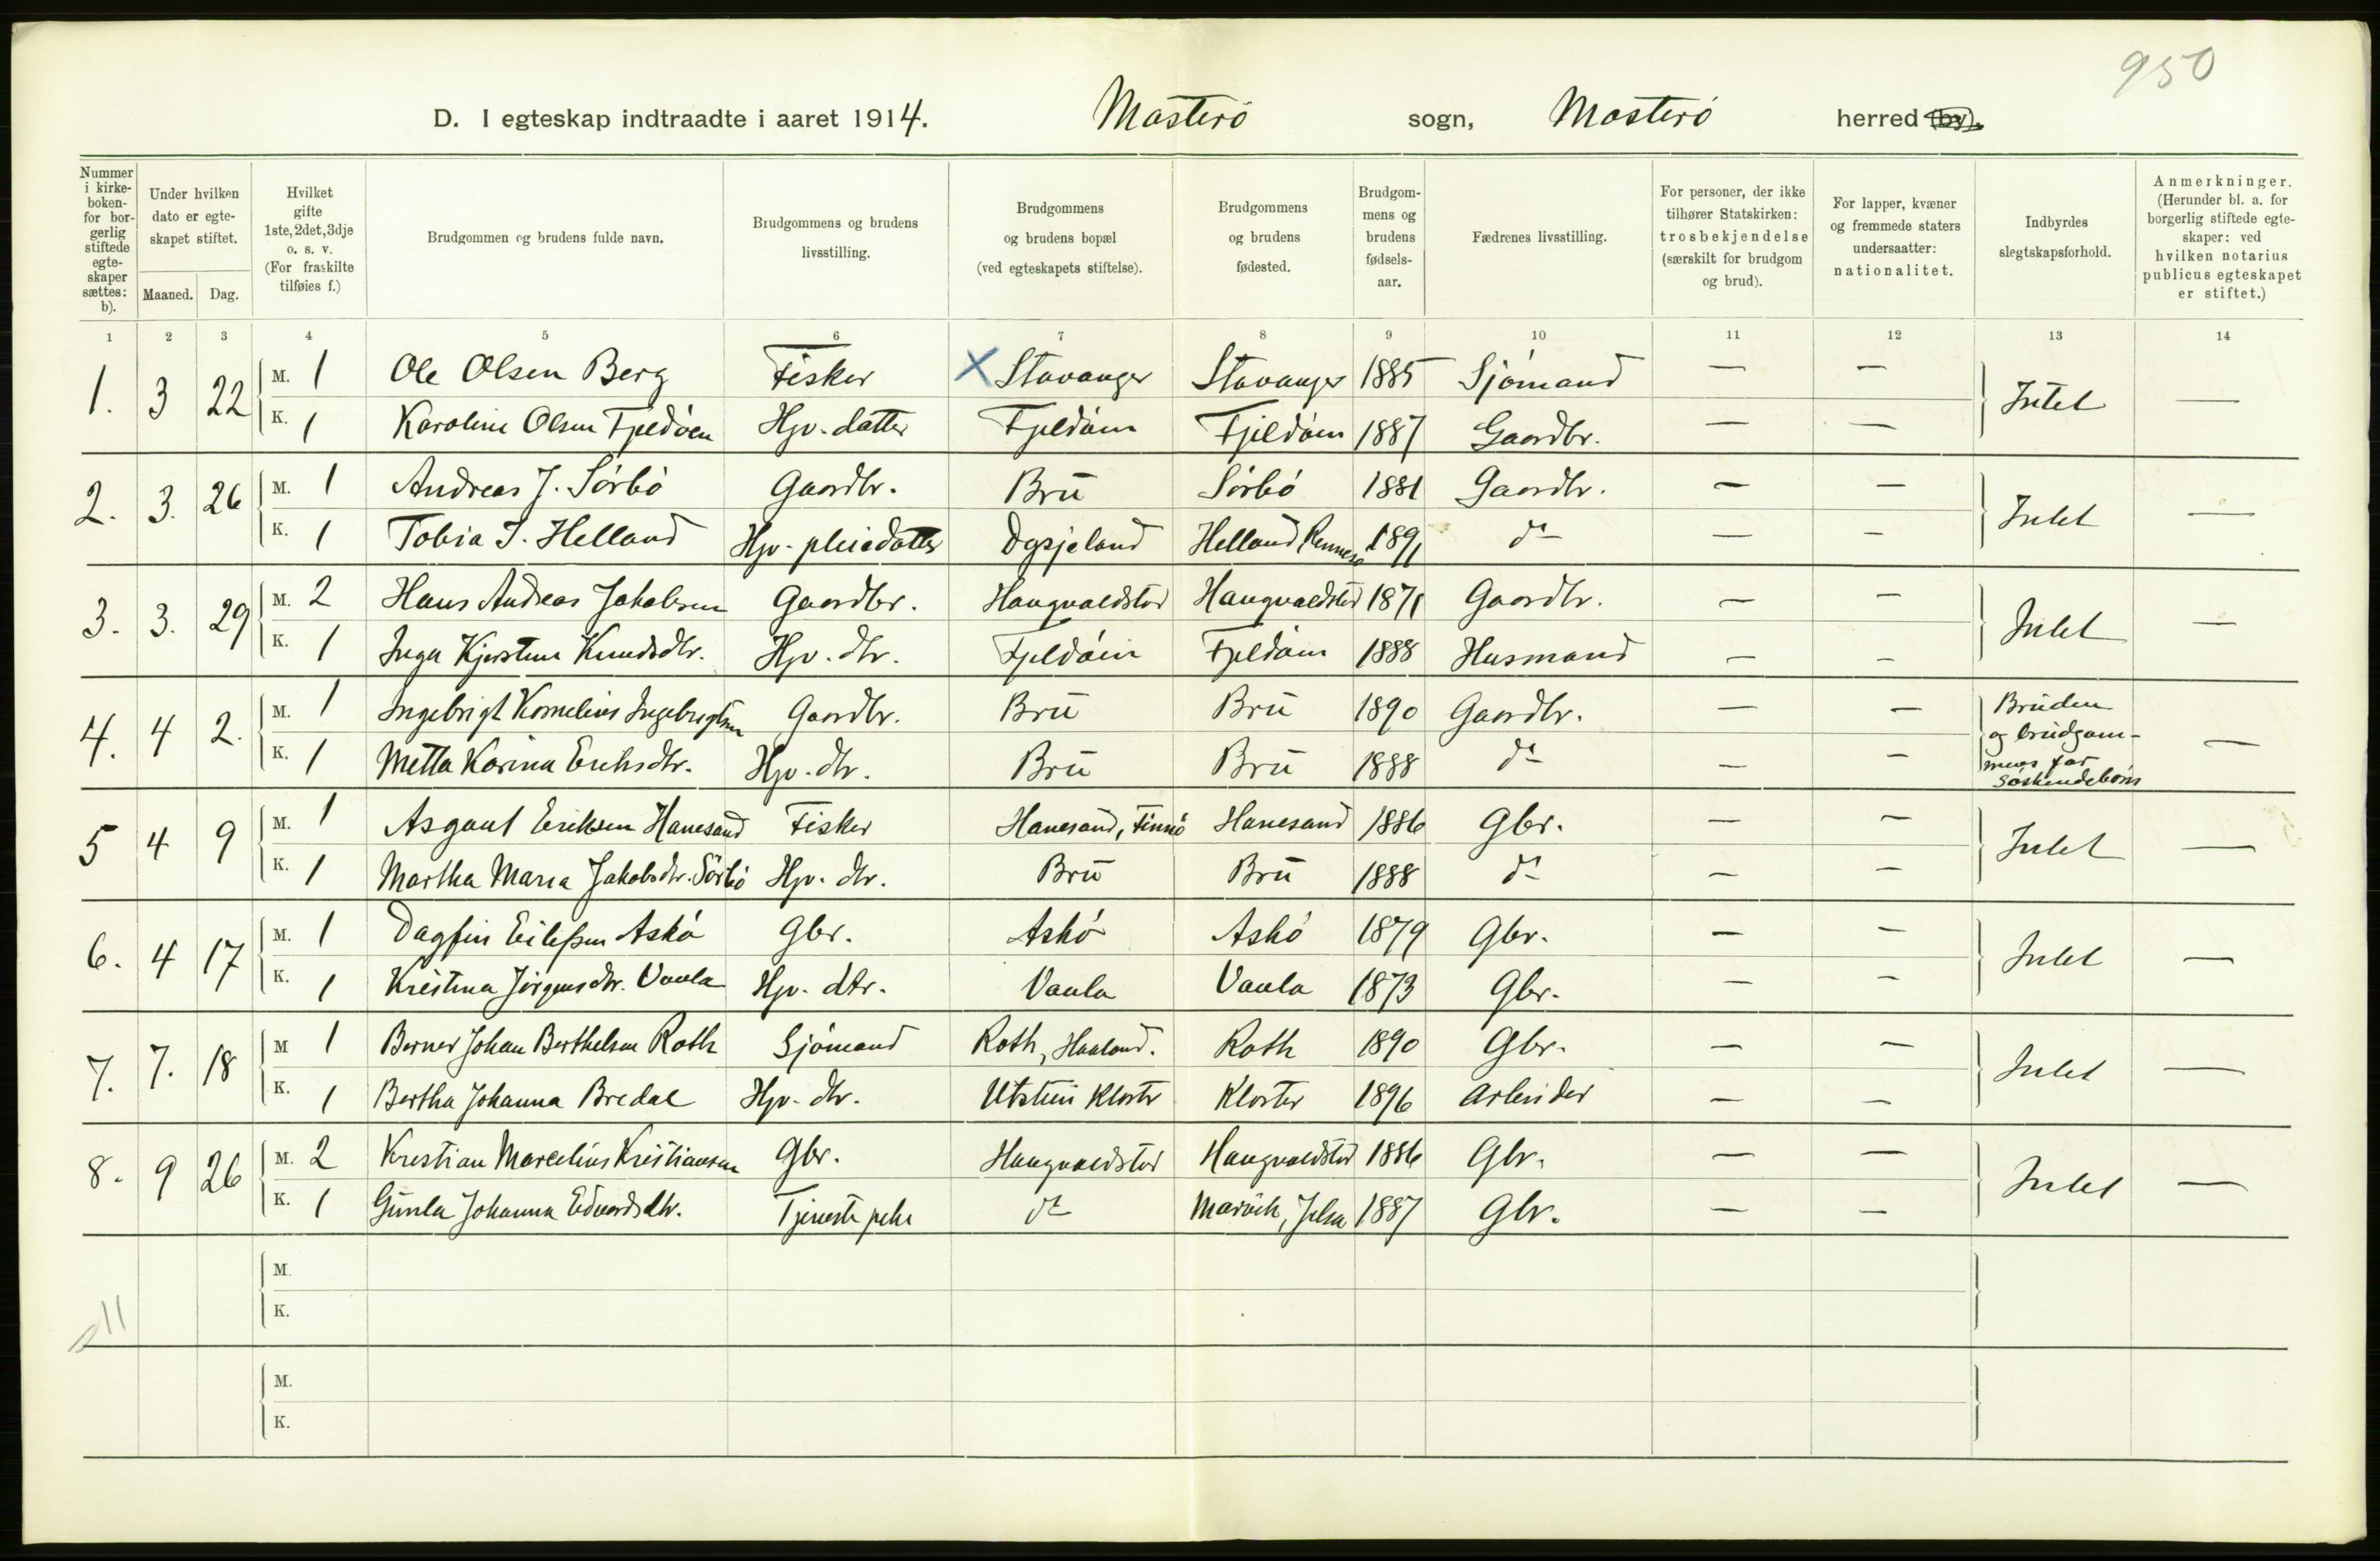 950
D. I egteskap indtraadte i aaret 1914. Mosterö sogn, Mosterö herred (by).
Nummer i kirke-boken- for bor-gerlig stiftede egte-skaper sættes: b).
Under hvilken dato er egte-skapet stiftet.
Maaned. Dag.
Hvilket gifte 1ste, 2det, 3dje o. s. v. (For fraskilte tilføies f.)
Brudgommen og brudens fulde navn.
Brudgommens og brudens livsstilling.
Brudgommens og brudens bopæl (ved egteskapets stiftelse).
Brudgommens og brudens fødested.
Brudgom-mens og brudens fødsels-aar.
Fædrenes livsstilling.
For personer, der ikke tilhører Statskirken: trosbekjendelse (særskilt for brudgom og brud).
For lapper, kvæner og fremmede staters undersaatter: nationalitet.
Indbyrdes slegtskapsforhold.
Anmerkninger. (Herunder bl. a. for borgerlig stiftede egte-skaper: ved hvilken notarius publicus egteskapet er stiftet.)
1 2 3 4 5 6 7 8 9 10 11 12 13 14
1. 3 22 M. 1 Ole Olsen Berg Fisker X Stavanger Stavanger 1885 Sjömand — — Intet —
K. 1 Karoline Olsen Fjeldöen Hjv. datter Fjeldöen Fjeldöen 1887 Gaardbr. — —
2. 3. 26 M. 1 Andreas J. Sörbö Gaardbr. Bru Sörbö 1881 Gaardbr. — — Intet —
K. 1 Tobia J. Helland Hjv. pleiedatter Dysjeland Helland Rennesö 1891 do — —
3. 3. 29 M. 2 Hans Andreas Jakobsen Gaardbr. Haugvaldstad Haugvaldstad 1871 Gaardbr. — — Intet —
K. 1 Inga Kjerstine Knudsdtr. Hjv. dtr. Fjeldöen Fjeldöen 1888 Husmand — —
4. 4 2. M. 1 Ingebrigt Kornelius Ingebrigtsen Gaardbr. Bru Bru 1890 Gaardbr. — — Bruden og brudgom-mens far Söskendebörn —
K. 1 Metta Karina Eriksdtr. Hjv. dtr. Bru Bru 1888 do — —
5 4 9 M. 1 Asgaut Eriksen Hanesand Fisker Hanesand, Finnö Hanesand 1886 Gbr. — — Intet —
K. 1 Martha Maria Jakobsdtr. Sörbö Hjv. dtr. Bru Bru 1888 do — —
6. 4 17 M. 1 Dagfin Eilefsen Askö Gbr. Askö Askö 1879 Gbr. — — Intet —
K. 1 Kristina Jörgensdtr. Vaula Hjv. dtr. Vaula Vaula 1873 Gbr. — —
7. 7. 18 M 1 Berner Johan Berthelsen Roth Sjömand Roth, Haaland. Roth 1890 Gbr. — — Intet —
K. 1 Bertha Johanna Bredal Hjv. dtr. Utstein Kloster Kloster 1896 Arbeider — —
8. 9 26 M. 2 Kristian Marcelius Kristiansen Gbr. Haugvaldstad Haugvaldstad 1886 Gbr. — — Intet —
K. 1 Gunla Johanna Edvardsdtr. Tjeneste pike do Jelsa 1887 Gbr. — —
M.
K.
11
M.
K.